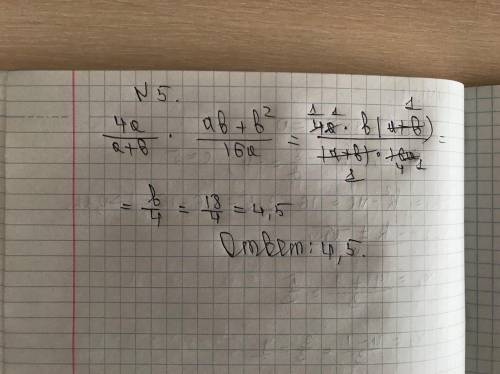 N 5.
4a/(a+b) · (ab+b²)/(16a) = (4a · b(a+b))/((a+b) · 16a) =
= b/4 = 18/4 = 4,5
Ответ: 4,5.